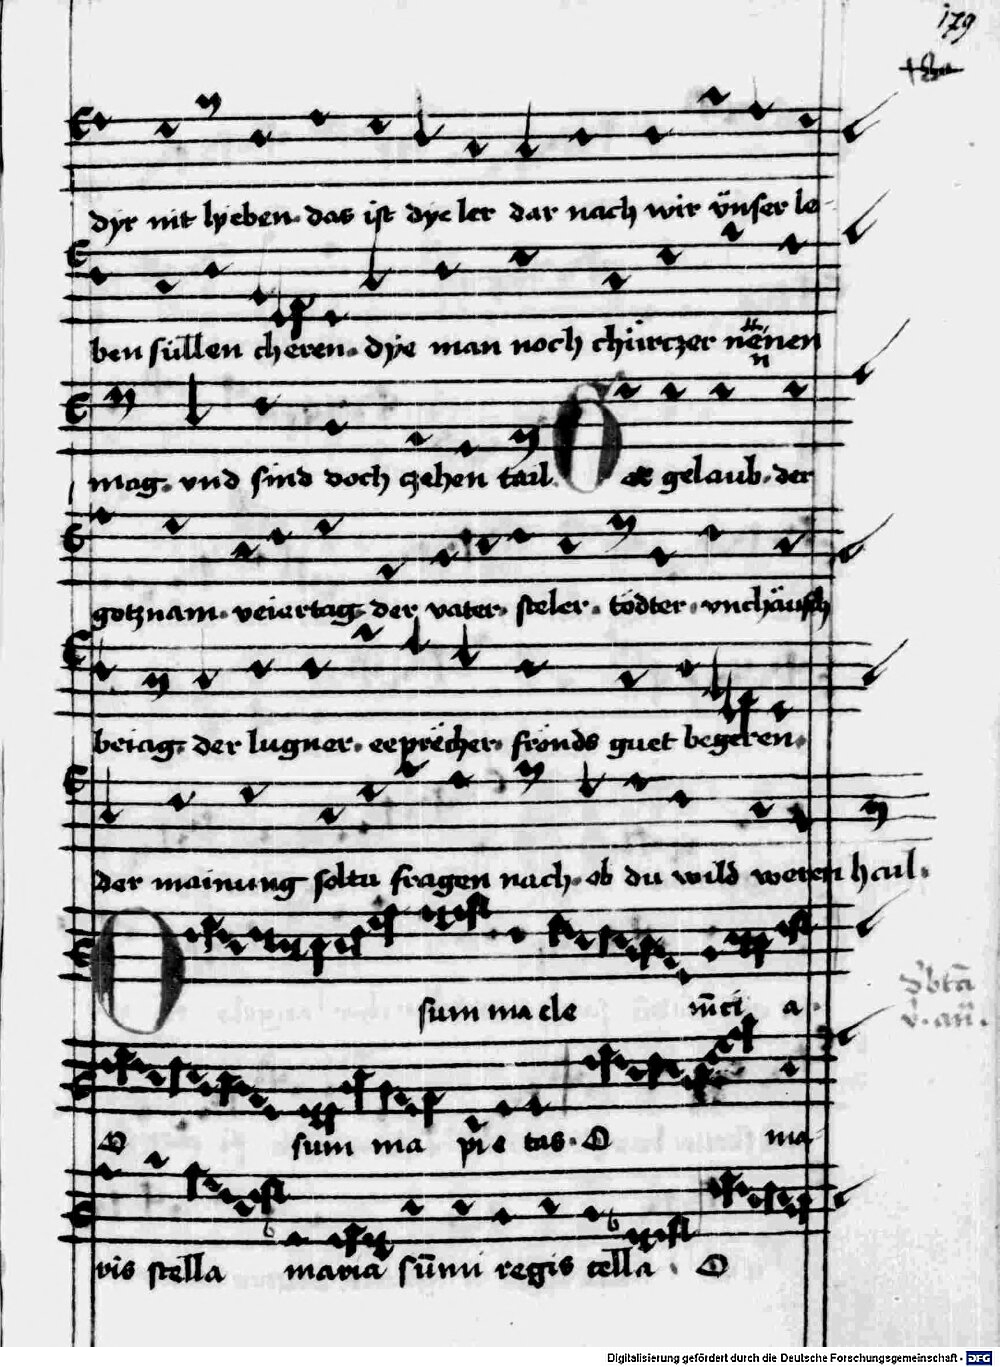 179
dyr nit lyeben. das ist dye ler dar nach wir ünser le-
ben süllen cheren. dye man noch chürczer nënen
mag. vnd sind doch czehen tail. O gelaub. der
gotz nam. veiertag. der vater. steler. tödter. vnchäusch
betag. der lugner. eeprecher. frönds guet begeren.
der mainung soltu fragen nach. ob du wild weren hail.
O summa cle m̄ci a.
O summa pie tas. O ma-
ris stella maria sum̄i regis cella. O
Digitalisierung gefördert durch die Deutsche Forschungsgemeinschaft - DFG